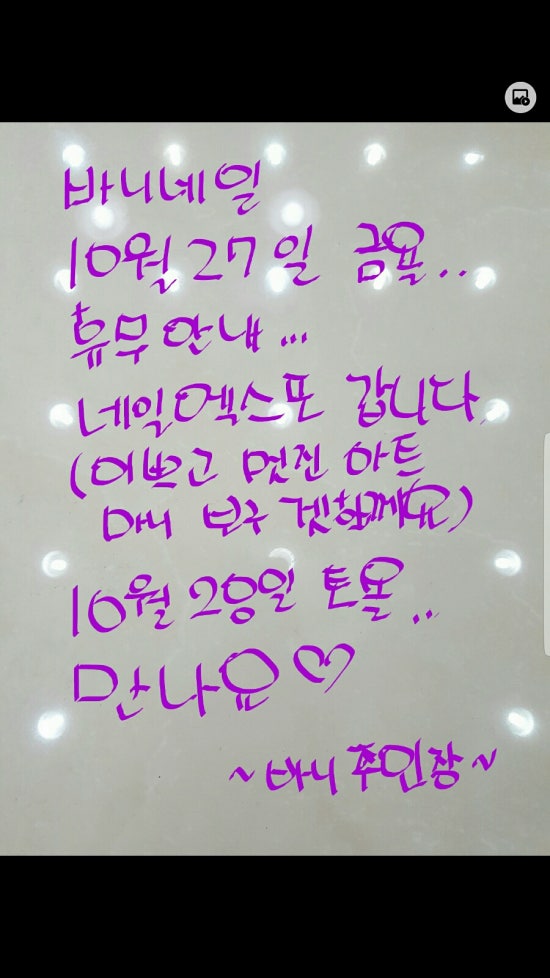 바니네일
10월 27일 금욜..
휴무안내...
네일엑스포 갑니다
(이쁘고 멋진 아트
마니 보구 겟함께요)
10월 28일 토욜..
만나요♡
~바니 쥔장~